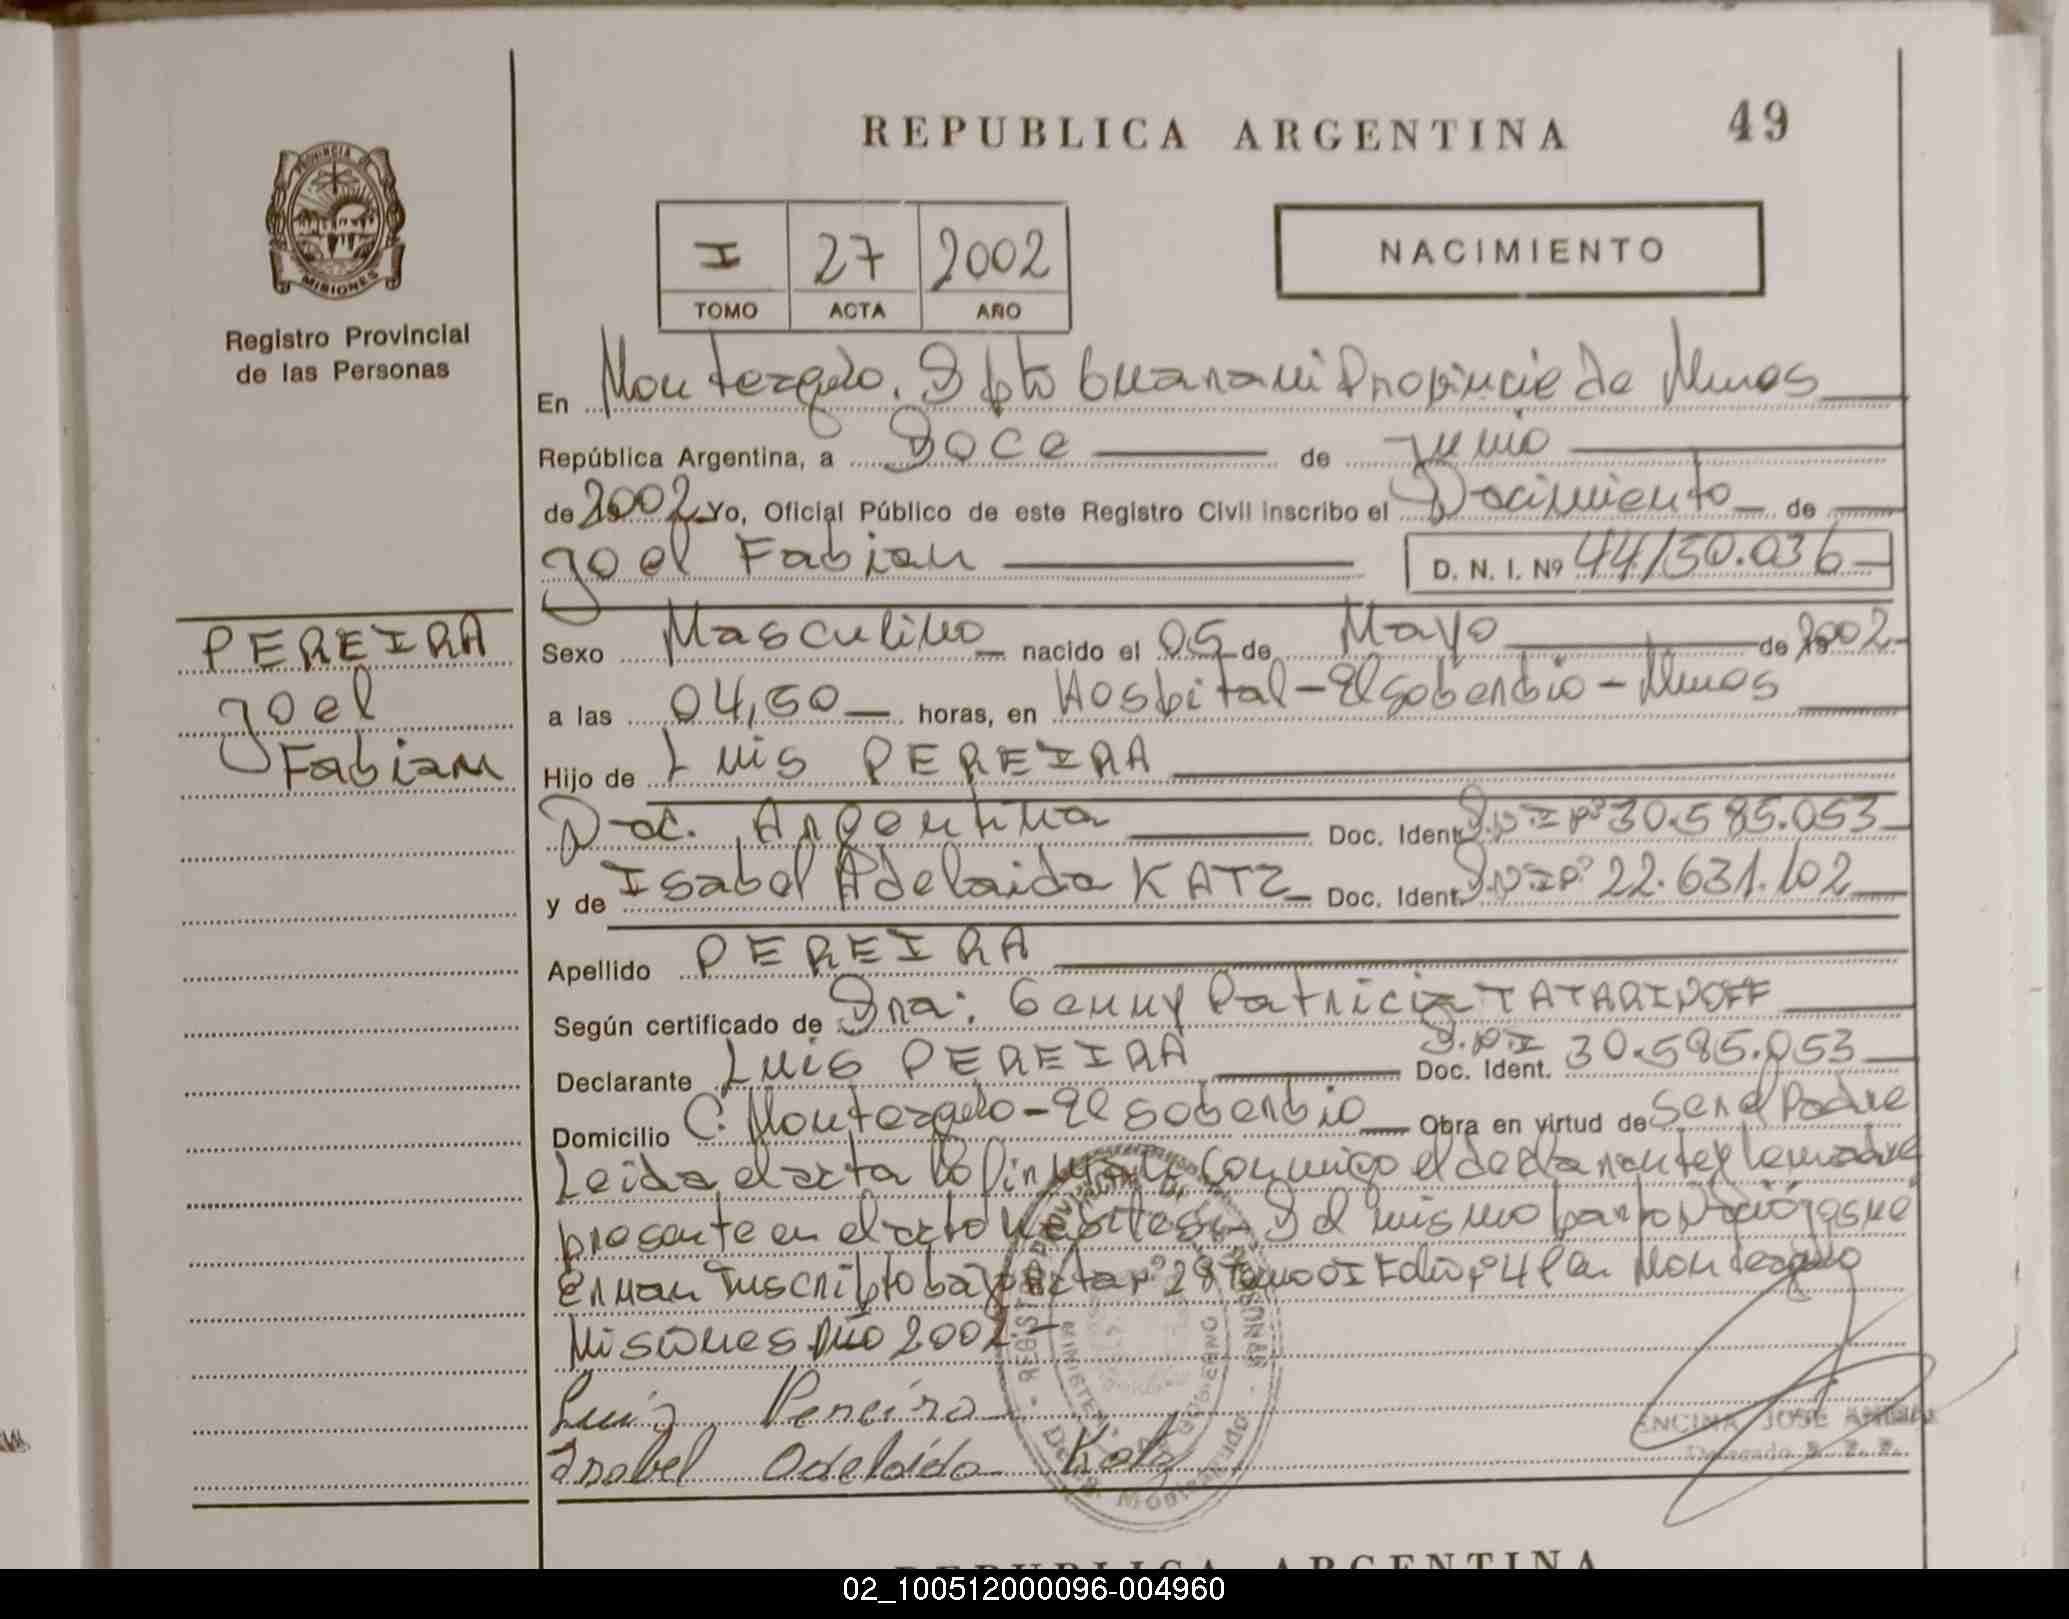 REPUBLICA ARGENTINA
49
PROVINCIA DE
MISIONES
Registro Provincial
de las Personas
I 27 2002
TOMO ACTA AÑO
NACIMIENTO
En Monteagudo. Dpto Guarani Provincia de Mnes
República Argentina, a Doce de junio
de 2002 Yo, Oficial Público de este Registro Civil inscribo el Nacimiento de
Joel Fabian D. N. I. Nº 44150.036
PEREIRA
Joel
Fabian
Sexo Masculino nacido el 05 de Mayo de 2002
a las 04,50 horas, en Hospital - El Soberbio - Mnes
Hijo de Luis PEREIRA
Nac. Argentina Doc. Ident. D.N.I Nº 30.585.053
y de Isabel Adelaida KATZ Doc. Ident. D.N.I Nº 22.631.102
Apellido PEREIRA
Según certificado de Dra: Genny Patricia TATARINOFF
Declarante Luis PEREIRA Doc. Ident. D.N.I 30.585.053
Domicilio C. Monteagudo - El Soberbio Obra en virtud de Ser el Padre
Leida el acta la firman conmigo el declarante y la madre
presente en el acto Del mismo parto Nació José
Erman Inscripto bajo acta nº 28 Tomo I Folio nº 49 en Monteagudo
Misiones Año 2002 -
Luis Pereira
Isabel Adelaida Katz
ENCINA JOSE
Delegado
REPUBLICA ARGENTINA
02_100512000096-004960